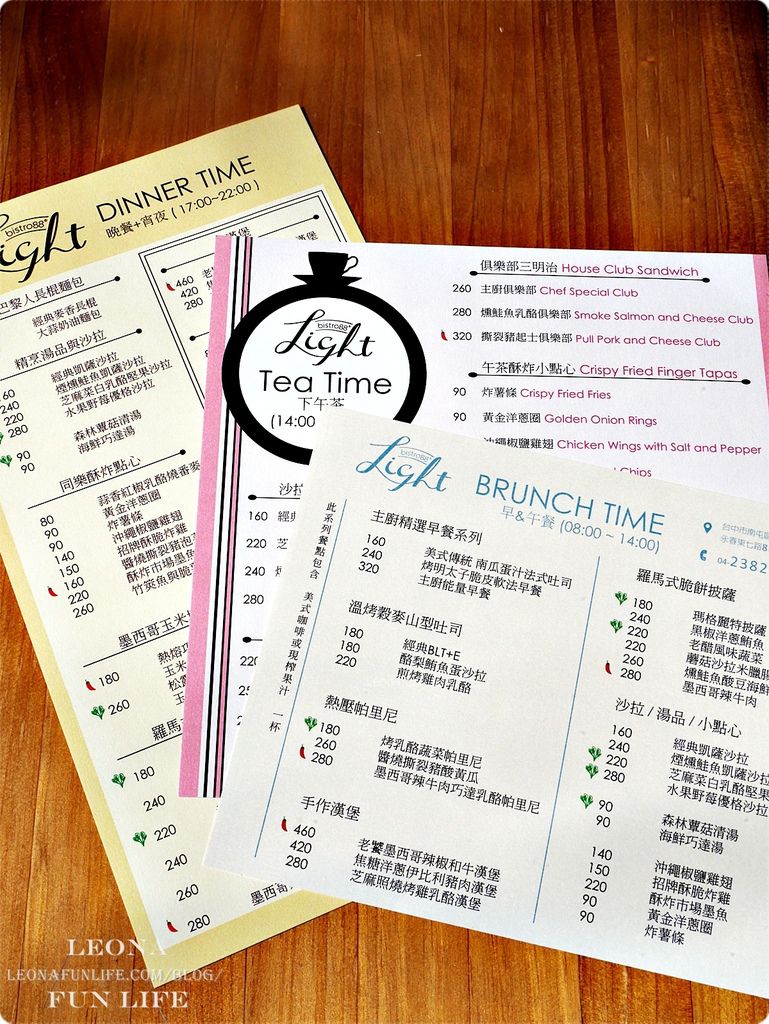 bistro88+
Light
DINNER TIME
晚餐+宵夜 (17:00~22:00)
巴黎人長棍麵包
經典麥香長棍
大蒜奶油麵包
精烹湯品與沙拉
160 經典凱薩沙拉
240 煙燻鮭魚凱薩沙拉
220 芝麻菜白乳酪堅果沙拉
280 水果野莓優格沙拉
90 森林蕈菇清湯
90 海鮮巧達湯
同樂酥炸點心
80 蒜香紅椒乳酪燒番麥
90 黃金洋蔥圈
90 炸薯條
140 沖繩椒鹽雞翅
150 招牌酥脆炸雞
160 醬燒撕裂豬泡
220 酥炸市場墨魚
260 竹莢魚與脆
墨西哥玉米
180 熱熔巧
玉米
260 松露
羅馬
180
240
220
240
260
280 墨西哥
460 老
420 焦
280
bistro88+
Light
Tea Time
下午茶
(14:00
俱樂部三明治 House Club Sandwich
260 主廚俱樂部 Chef Special Club
280 燻鮭魚乳酪俱樂部 Smoke Salmon and Cheese Club
320 撕裂豬起士俱樂部 Pull Pork and Cheese Club
午茶酥炸小點心 Crispy Fried Finger Tapas
90 炸薯條 Crispy Fried Fries
90 黃金洋蔥圈 Golden Onion Rings
沖繩椒鹽雞翅 Chicken Wings with Salt and Pepper
Chips
沙拉
160 經典
220 芝
240
280
180
220
bistro88+
Light
BRUNCH TIME
早&午餐 (08:00 ~ 14:00)
台中市南屯區
永春東七路8
04-2382
此系列餐點包含 美式咖啡或現榨果汁 一杯
主廚精選早餐系列
160 美式傳統 南瓜蛋汁法式吐司
240 烤明太子脆皮軟法早餐
320 主廚能量早餐
溫烤穀麥山型吐司
180 經典BLT+E
180 酪梨鮪魚蛋沙拉
220 煎烤雞肉乳酪
熱壓帕里尼
180 烤乳酪蔬菜帕里尼
260 醬燒撕裂豬酸黃瓜
280 墨西哥辣牛肉巧達乳酪帕里尼
手作漢堡
460 老饕墨西哥辣椒和牛漢堡
420 焦糖洋蔥伊比利豬肉漢堡
280 芝麻照燒烤雞乳酪漢堡
羅馬式脆餅披薩
180 瑪格麗特披薩
240 黑椒洋蔥鮪魚
220 老醋風味蔬菜
220 蘑菇沙拉米臘腸
260 燻鮭魚酸豆海鮮
280 墨西哥辣牛肉
沙拉 / 湯品 / 小點心
160 經典凱薩沙拉
240 煙燻鮭魚凱薩沙拉
220 芝麻菜白乳酪堅果
280 水果野莓優格沙拉
90 森林蕈菇清湯
90 海鮮巧達湯
140 沖繩椒鹽雞翅
150 招牌酥脆炸雞
220 酥炸市場墨魚
90 黃金洋蔥圈
90 炸薯條
LEONA
LEONAFUNLIFE.COM/BLOG/
FUN LIFE